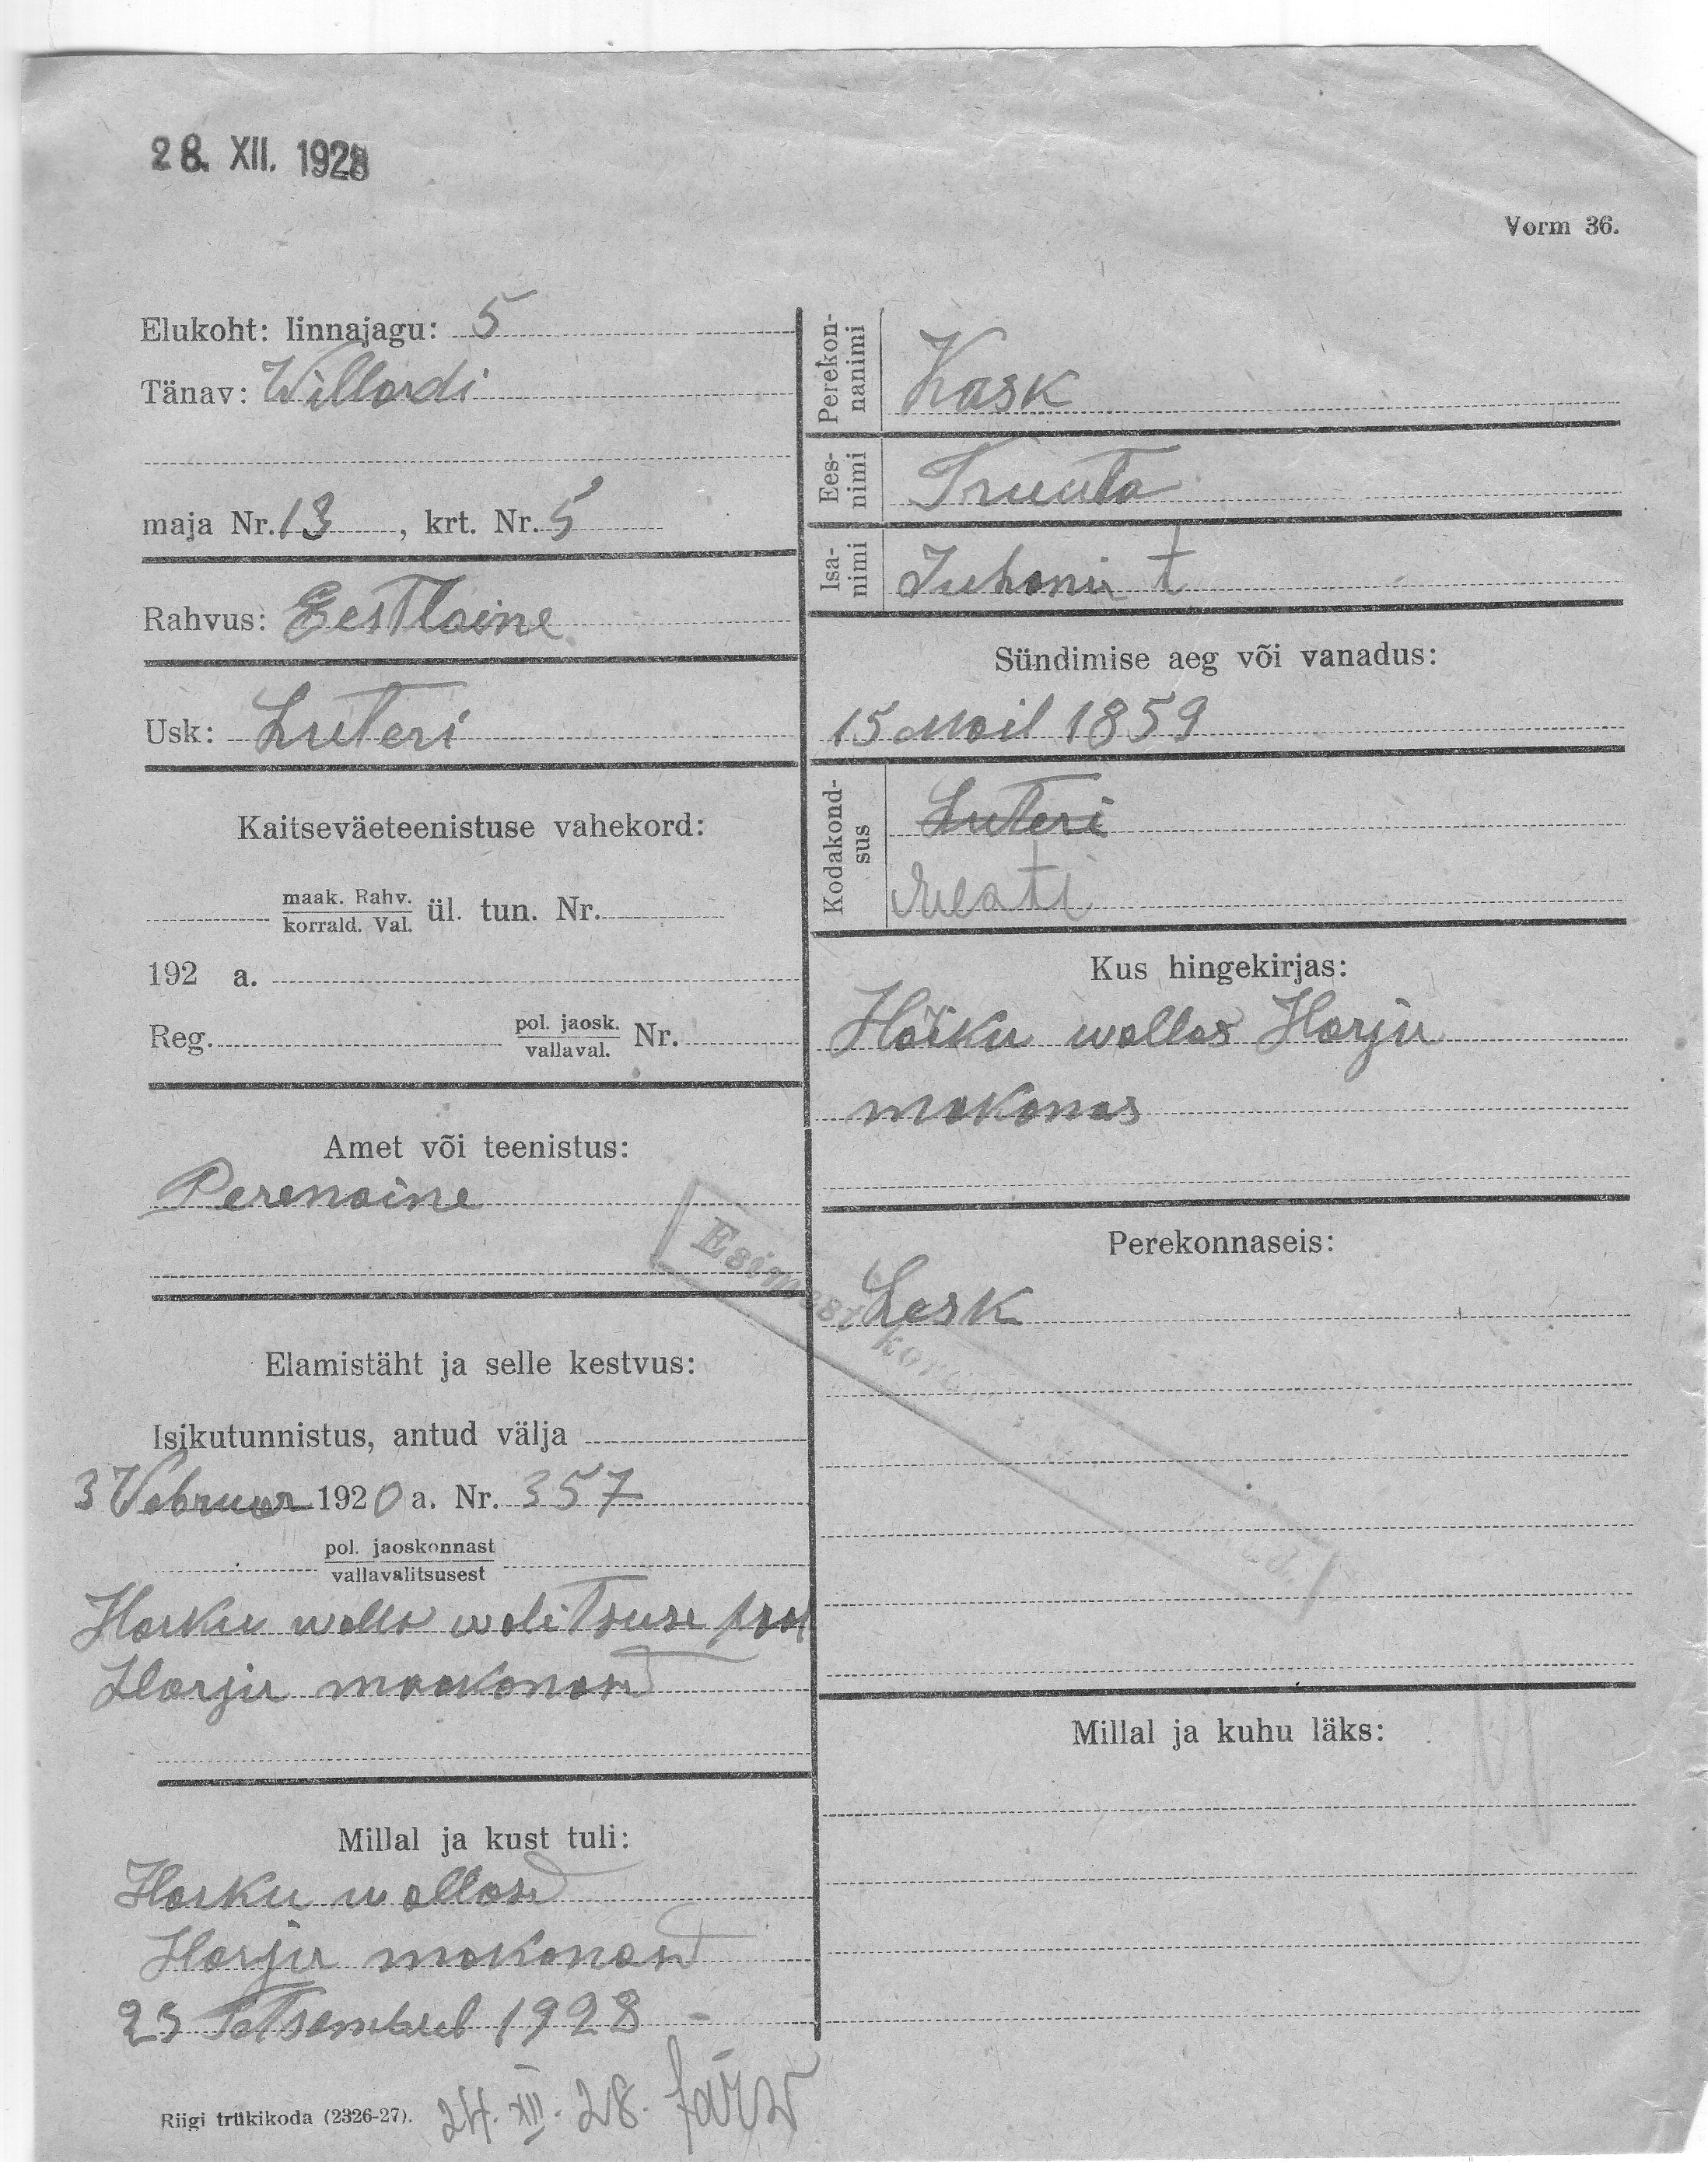 28. XII. 1928
Vorm 36.
Elukoht: linnajagu: 5
Tänav: Willardi
maja Nr. 13, krt. Nr. 5
Rahvus: Eestlaine
Usk: Luteri
Kaitseväeteenistuse vahekord:
maak. Rahv.
korrald. Val.
ül. tun. Nr.
192 a.
Reg. pol. jaosk. Nr.
vallaval.
Amet või teenistus:
Perenaine
Elamistäht ja selle kestvus:
Isikutunnistus, antud välja
3 Vebruar 1920 a. Nr. 357
pol. jaoskonnast
vallavalitsusest
Harku walla walitsuse
Harju maakonast
Millal ja kust tuli:
Harku wallast
Harju makonast
23 Tetsembril 1928
Riigi trükikoda (2326-27). 24. XII. 28.
Perekon-
nanimi
Kask
Ees-
nimi
Truuta
Isa-
nimi
Juhani t
Sündimise aeg või vanadus:
15 Mail 1859
Kodakond-
sus
Luteri
Kus hingekirjas:
Harku wallas Harju
makonas
Perekonnaseis:
Lesk
Esimest kor
Millal ja kuhu läks: